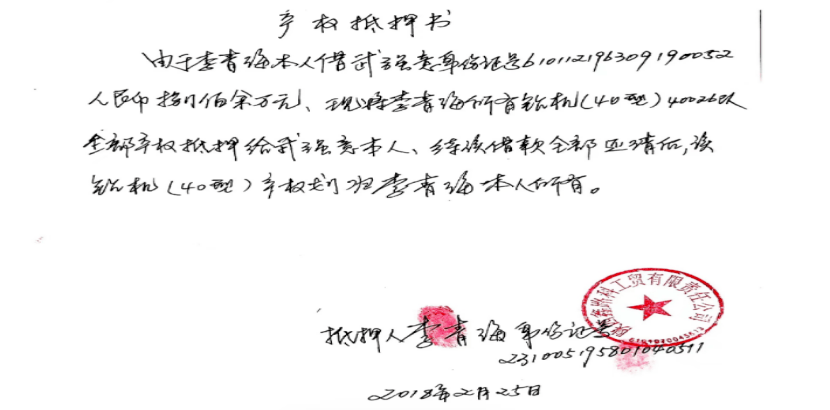 产权抵押书
由于李青海本人借武强意身份证号610112196309190052
人民币捌佰余万元、现将李青海所有钻机(40型)40026队
全部产权抵押给武强意本人、待该借款全部还清后,该
钻机(40型)产权划归李青海本人所有。
科工贸有限责任公司
抵押人李青海身份证号
231005195801040511
2018年2月25日